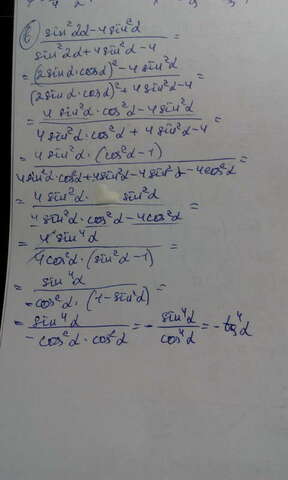 б) sin²2α-4sin²α / sin²2α+4sin²α-4 =
= (2sinα·cosα)²-4sin²α / (2sinα·cosα)²+4sin²α-4 =
= 4sin²α·cos²α-4sin²α / 4sin²α·cos²α+4sin²α-4 =
= 4sin²α·(cos²α-1) / 4sin²α·cos²α+4sin²α-4sin²α-4cos²α =
= 4sin²α· sin²α / 4sin²α·cos²α-4cos²α =
= 4sin⁴α / 4cos²α·(sin²α-1) =
= sin⁴α / -cos²α·(1-sin²α) =
= sin⁴α / -cos²α·cos²α = - sin⁴α / cos⁴α = -tg⁴α